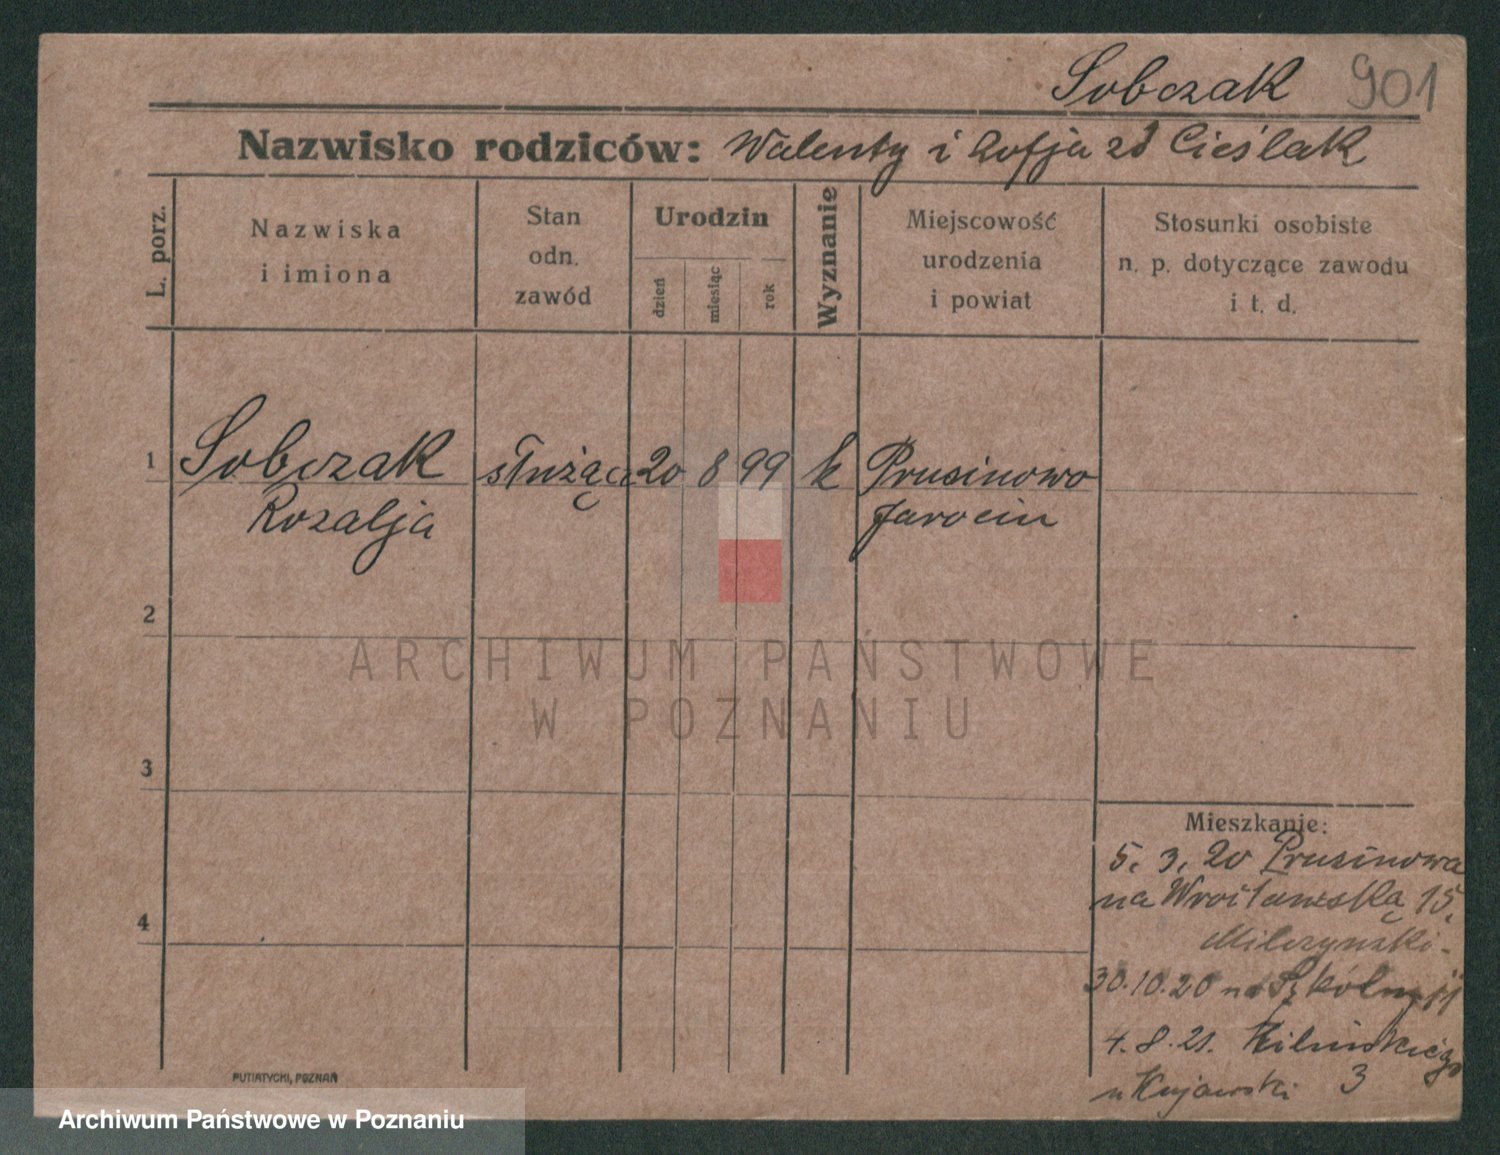 Sobczak 901
Nazwisko rodziców: Walenty i Zofja zd Cieślak
L. porz.
Nazwiska
i imiona
Stan
odn.
zawód
Urodzin
dzień
miesiąc
rok
Wyznanie
Miejscowość
urodzenia
i powiat
Stosunki osobiste
n. p. dotyczące zawodu
i t. d.
1 Sobczak służąca 20 8 99 k Prusinowo
Rozalja Jarocin
2
ARCHIWUM PAŃSTWOWE
W POZNANIU
3
Mieszkanie:
5. 3. 20 Prusinowa
na Wrocławską 15,
Milczynski.
4
30.10.20 na Szkólną 11
4. 8. 21. Kilinskiego
u Kujawski 3
PUTIATYCKI, POZNAŃ
Archiwum Państwowe w Poznaniu